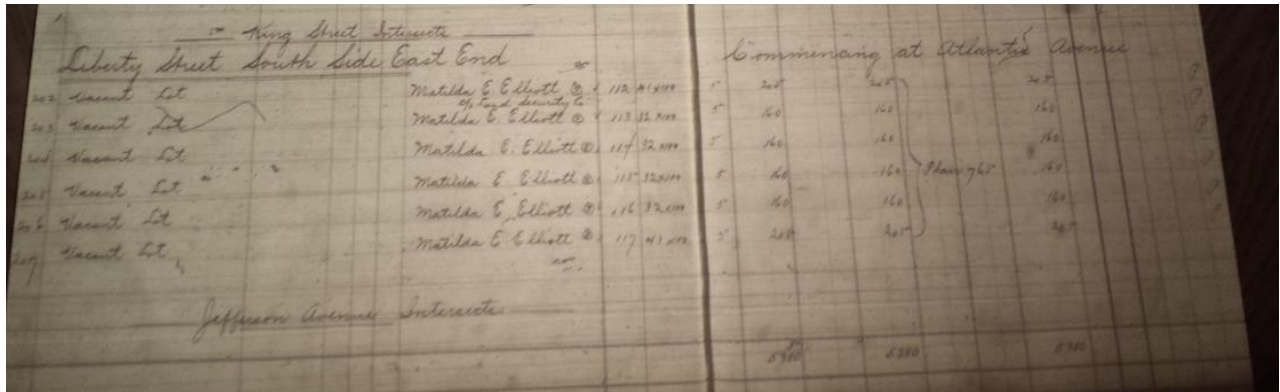 King Street Intersects
Liberty Street South Side East End Commencing at Atlantic Avenue
202 Vacant Lot Matilda E. Elliott 112 41x100 5 205 205 205
c/o Loyd Security Co
203 Vacant Lot Matilda E. Elliott 113 32x100 5 160 160 160
204 Vacant Lot Matilda E. Elliott 114 32x100 5 160 160 160
205 Vacant Lot Matilda E. Elliott 115 32x100 5 160 160 160
206 Vacant Lot Matilda E. Elliott 116 32x100 5 160 160 160
207 Vacant Lot Matilda E. Elliott 117 41x100 5 205 205 205
Jefferson Avenue Intersects
5380 5380